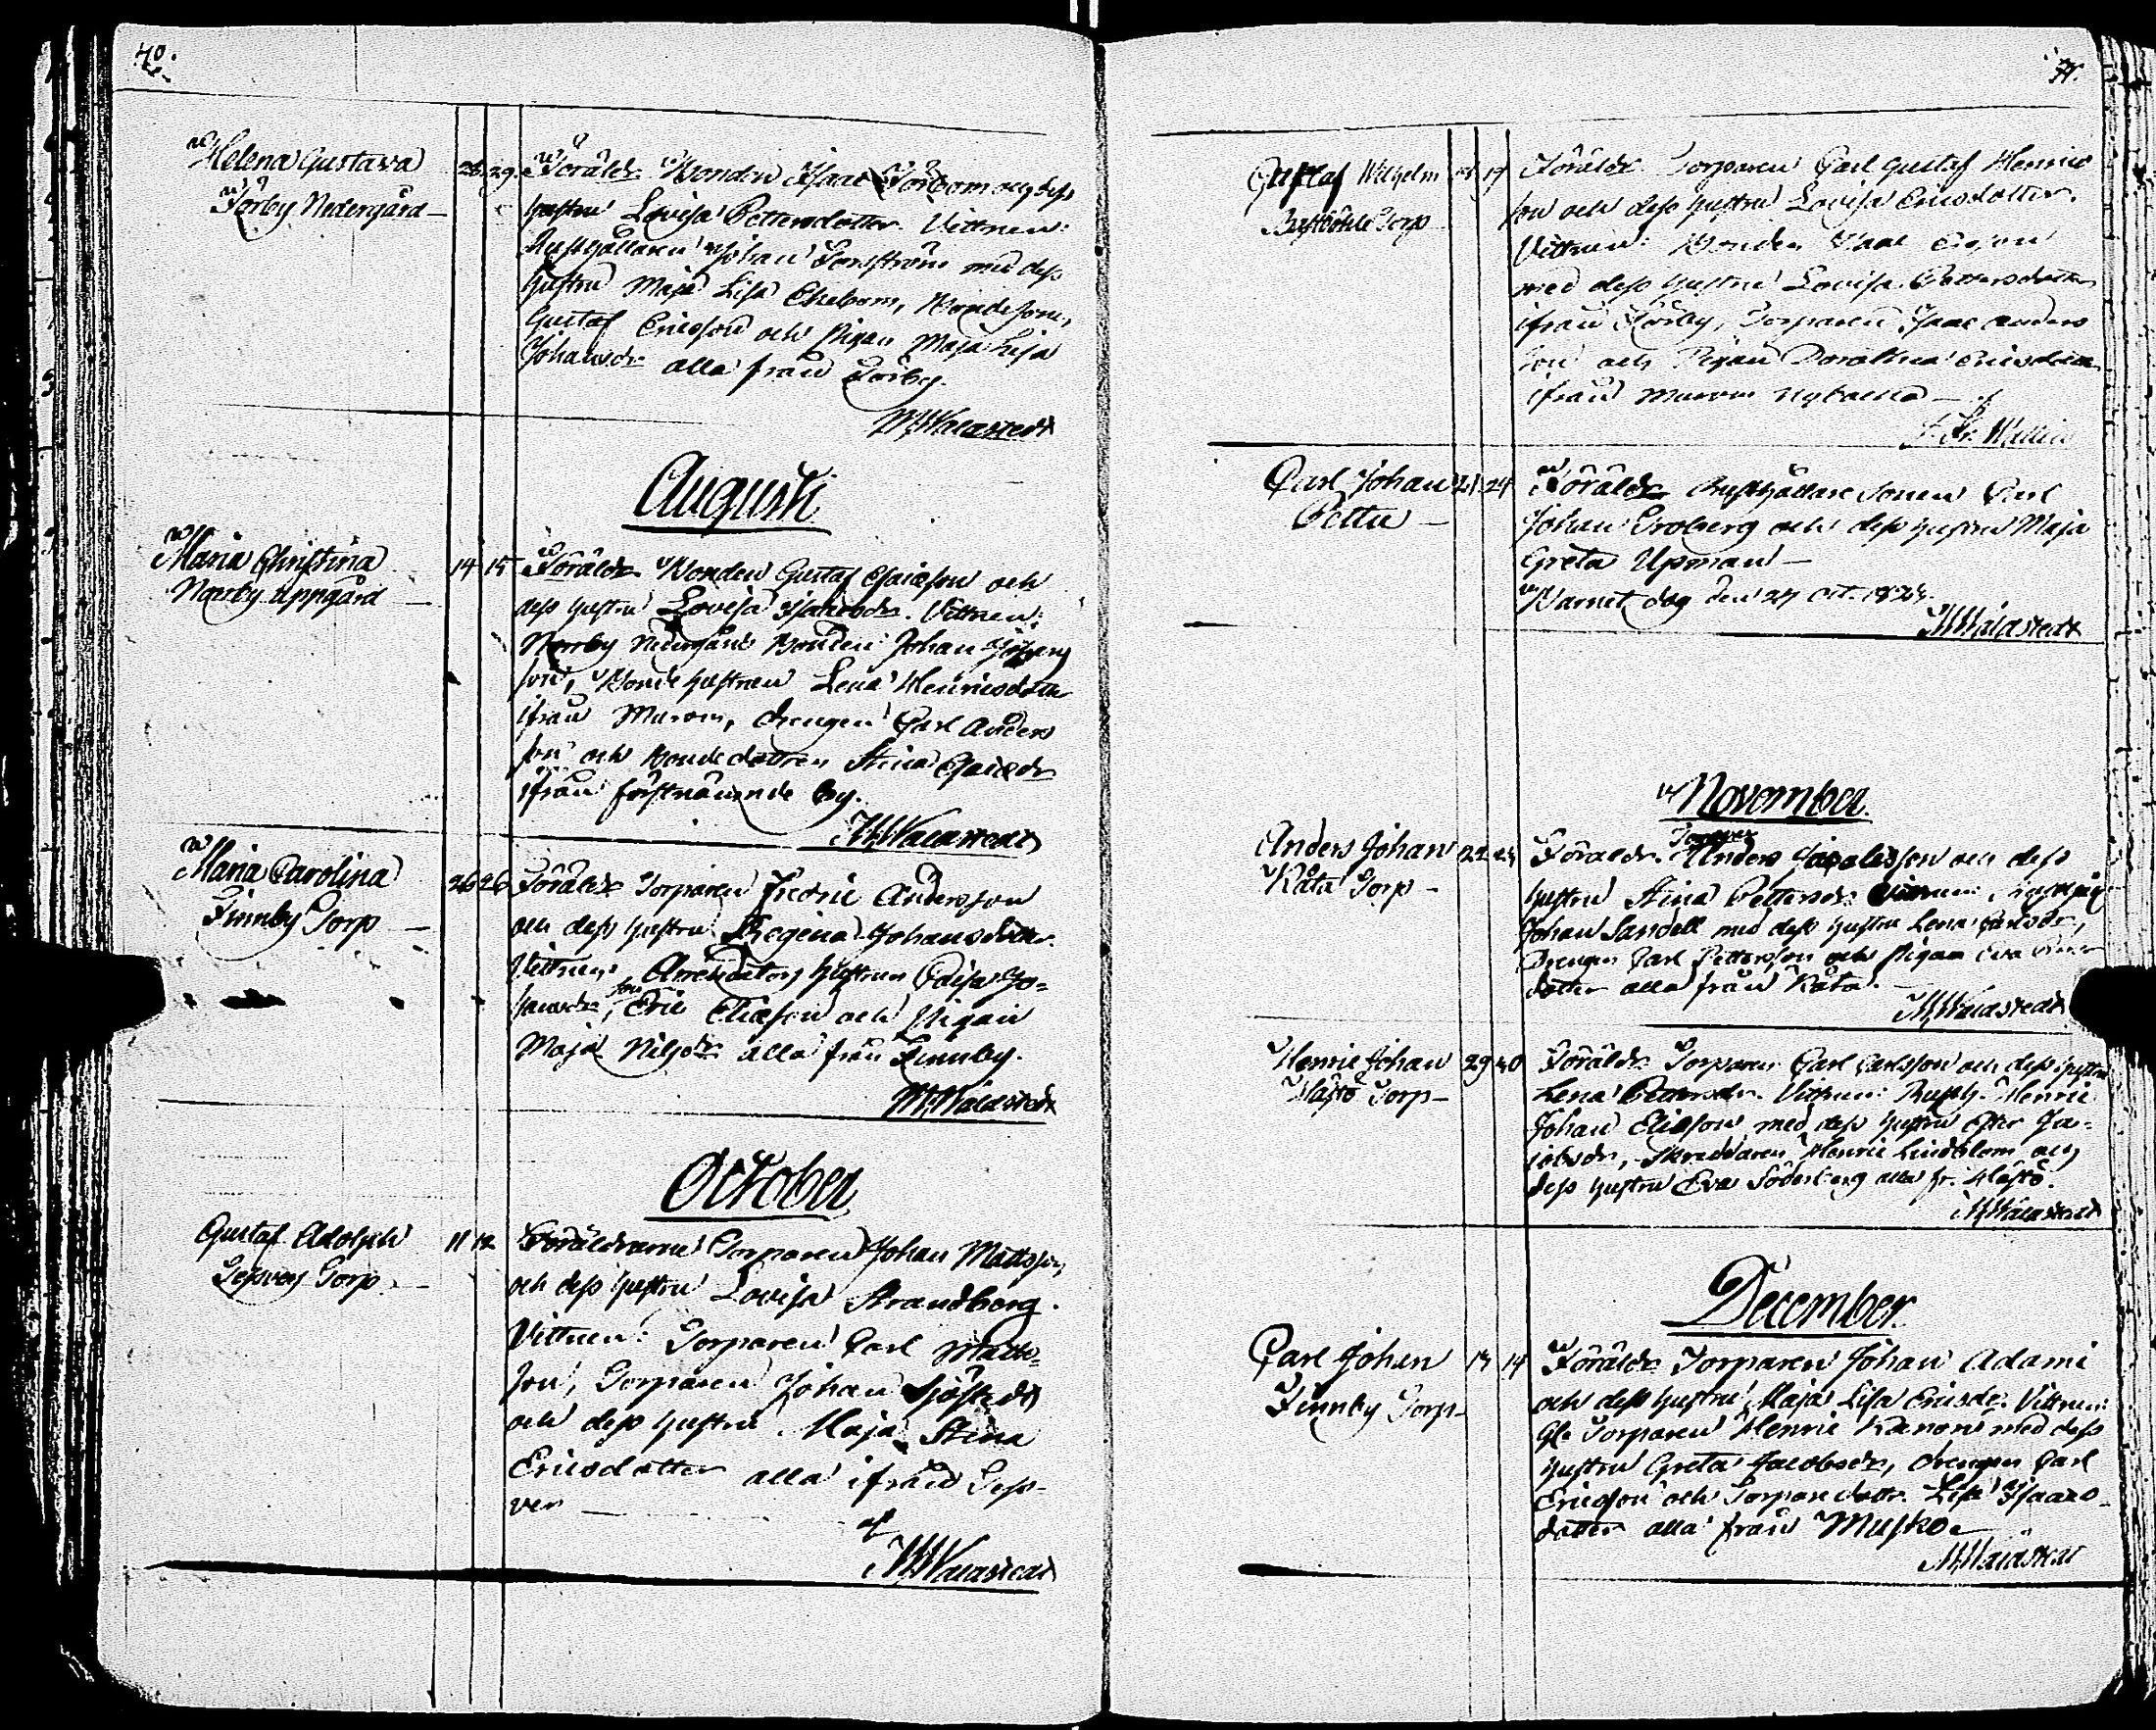 40.
Helena Gustava
Förby Nedergård —
28. 29. Föräldr. Bonden Isaac Förbom och dess
hustru Lovisa Pettersdotter. Vittnen:
Rusthållaren Johan Forsström med dess
hustru Maja Lisa Ekebom, Bondesonen
Gustaf Ericsson och Pigan Maja Lisa
Johansdr alla från Förby.
Augusti
Maria Christina
Norrby uppgård —
14 15 Föräldr. Bonden Gustaf Esaiæson och
dess hustru Lovisa Isaacsdr. Vittnen:
Norrby Nedergårds Bonden Johan
son, Bonde hustrun Lena Henricsdotter
ifrån Murom, drengen Carl Anders
son och Bondedottren Stina Esaiædr
ifrån förstnämnde by.
Maria Carolina
Finnby Torp —
26 26 Föräldr. Torparen Fredric Andersson
och dess hustru Regina Johansdotter.
Vittnen, Arrendators hustrun Caisa Jo=
hansdr, son Eric Eliæson och Pigan
Maja Nilsdr alla från Finnby.
October
Gustaf Adolph
Tesver Torp. —
11 12 Föräldrarne Torparen Johan Mattsson
och dess hustru Lovisa Strandberg.
Vittnen: Torparen Carl Matts=
son, Torparen Johan Sjöstedt
och dess hustru Maja Stina
Ericsdotter alla ifrån Tess-
ver —
41.
Gustaf Wilhelm
Torp
17 Föräldr. Torparen Carl Gustaf Henrics
son och dess hustru Lovisa Ericsdotter.
Vittnen: Bonden Isaac Ersson
med dess hustru Lovisa Pettersdotter
ifrån Förby, Torparen Isaac Anders
son och Pigan Dorothea Ericsdotter
ifrån Murom Nybacka —
F. Fr. Wallin
Carl Johan
Pettu —
21 24 Föräldr. Rusthållare Sonen Carl
Johan Broberg och dess hustru Maja
Greta Upman —
Barnet dog den 27 Oct.
November.
Anders Johan
Råta Torp —
22 Föräldr. Torpare Anders Jacobsson och dess
hustru Stina Pettersdr. Vittnen:
Johan Sandell med dess hustru Lena Carlsdr,
Drengen Carl Pettersson och Pigan Eva
dotter alla från Råta.
Henric Johan
Hästö Torp —
29 30 Föräldr. Torparen Carl Carlsson och dess hustru
Lena Pettersdr. Vittnen: Rusth. Henric
Johan Eliæson med dess hustru Ester Ja=
cobsdr, Skreddaren Henric Lindblom och
dess hustru Eva Söderberg alla fr. Hästö.
December.
Carl Johan
Finnby Torp —
13 14 Föräldr. Torparen Johan Adami
och dess hustru Maja Lisa Ericsdr. Vittnen:
Gle Torparen Henric Kanon med dess
hustru Greta Jacobsdr, drengen Carl
Ericsson och Torpare dottr. Lisa Isaacs-
dotter alla från Muskoe